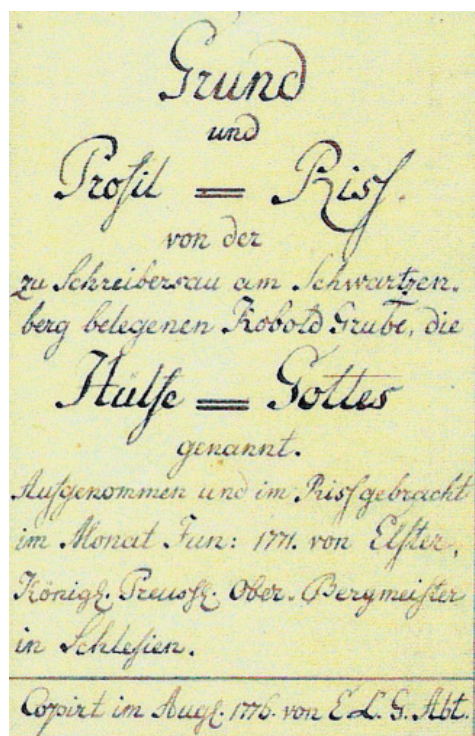 Grund
und
Profil = Riss.
von der
zu Schreibersau am Schwartzen-
berg belegenen Kobold Grube, die
Hülfe = Gottes
genannt.
Aufgenommen und im Riss gebracht
im Monat Jun: 1771. von Elster,
Königl. Preussl. Ober-Bergmeister
in Schlesien.
Copirt im Augl. 1776. von E. L. G. Abt.